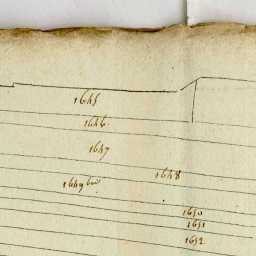 1645
1646
1647
1648
1649 bis
1650
1651
1652